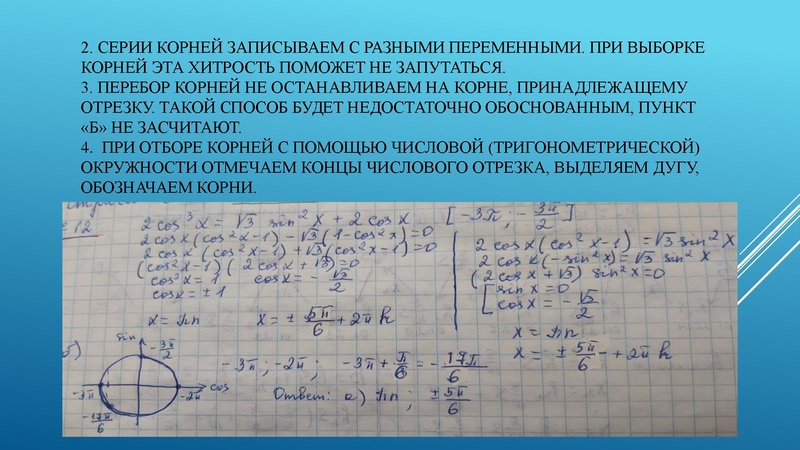 2. СЕРИИ КОРНЕЙ ЗАПИСЫВАЕМ С РАЗНЫМИ ПЕРЕМЕННЫМИ. ПРИ ВЫБОРКЕ
КОРНЕЙ ЭТА ХИТРОСТЬ ПОМОЖЕТ НЕ ЗАПУТАТЬСЯ.
3. ПЕРЕБОР КОРНЕЙ НЕ ОСТАНАВЛИВАЕМ НА КОРНЕ, ПРИНАДЛЕЖАЩЕМУ
ОТРЕЗКУ. ТАКОЙ СПОСОБ БУДЕТ НЕДОСТАТОЧНО ОБОСНОВАННЫМ, ПУНКТ
«Б» НЕ ЗАСЧИТАЮТ.
4. ПРИ ОТБОРЕ КОРНЕЙ С ПОМОЩЬЮ ЧИСЛОВОЙ (ТРИГОНОМЕТРИЧЕСКОЙ)
ОКРУЖНОСТИ ОТМЕЧАЕМ КОНЦЫ ЧИСЛОВОГО ОТРЕЗКА, ВЫДЕЛЯЕМ ДУГУ,
ОБОЗНАЧАЕМ КОРНИ.
12
2 cos³x = √3 sin²x + 2 cos x [-3π; -3π/2]
2 cos x (cos²x-1) - √3 (1-cos²x) = 0
2 cos x (cos²x-1) + √3 (cos²x-1) = 0
(cos²x-1)(2 cos x + √3) = 0
cos²x = 1 cos x = -√3/2
cos x = ±1
x = πn x = ±5π/6 + 2πk
2 cos x (cos²x-1) = √3 sin²x
2 cos x (-sin²x) = √3 sin²x
(2 cos x + √3) sin²x = 0
[sin x = 0
cos x = -√3/2
x = πn
x = ±5π/6 + 2πk
б)
sin
-3π/2
-3π
-2π
cos
-17π/6
-3π; -2π; -3π + π/6 = -17π/6
Ответ: а) πn; ±5π/6